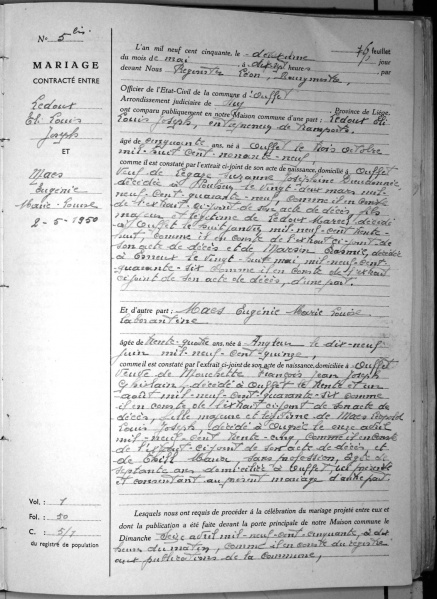 N° 5 bis
MARIAGE
CONTRACTÉ ENTRE
Ledout
Eli Louis
Joseph
ET
Maes
Eugénie
Marie Louise
2-5-1950
Vol. : 1
Fol. : 50
C. : 5/7
du registre de population
feuillet
L'an mil neuf cent cinquante, le deuxième jour
du mois de mai à heures par
devant Nous Léon, Bourgmestre,
Officier de l'Etat-Civil de la commune d'Ouffet
Arrondissement judiciaire de Huy Province de Liège,
ont comparu publiquement en notre Maison commune d'une part : Ledout Eli
Louis Joseph, entrepreneur de transports
âgé de cinquante ans, né à Ouffet le trois octobre
mil-huit-cent-nonante-neuf,
comme il est constaté par l'extrait ci-joint de son acte de naissance, domicilié à Ouffet
veuf de
décédée à le vingt-deux mars mil-
neuf-cent-quarante-neuf, comme il en conste
de l'extrait ci-joint de son acte de décès, fils
majeur et légitime de Ledout Marcel, décédé
à Ouffet le huit janvier mil-neuf-cent-trente-
huit comme il en conste de l'extrait ci-joint de
son acte de décès et de décédée
à le vingt-huit mai mil-neuf-cent-
quarante-six comme il en conste de l'extrait
ci-joint de son acte de décès, d'une part.
Et d'autre part : Maes Eugénie Marie Louise
laborantine
âgée de trente-quatre ans, née à Angleur le dix-neuf
juin mil-neuf-cent-quinze,
comme il est constaté par l'extrait ci-joint de son acte de naissance, domiciliée à Ouffet
veuve de François Jean Joseph
Ghislain, décédé à Ouffet le trente et un
août mil-neuf-cent-quarante-six comme
il en conste de l'extrait ci-joint de son acte de
décès, fille majeure et légitime de Maes
Louis Joseph, décédé à Ougrée le onze août
mil-neuf-cent trente-cinq comme il en conste
de l'extrait ci-joint de son acte de décès et
de sans profession, âgée de
septante ans domiciliée à Ouffet, ici présente
et consentant au présent mariage d'autre part
Lesquels nous ont requis de procéder à la célébration du mariage projeté entre eux et
dont la publication a été faite devant la porte principale de notre Maison commune le
Dimanche seize avril mil-neuf-cent-cinquante, à dix
heures du matin, comme il en conste du registre
aux publications de la commune,